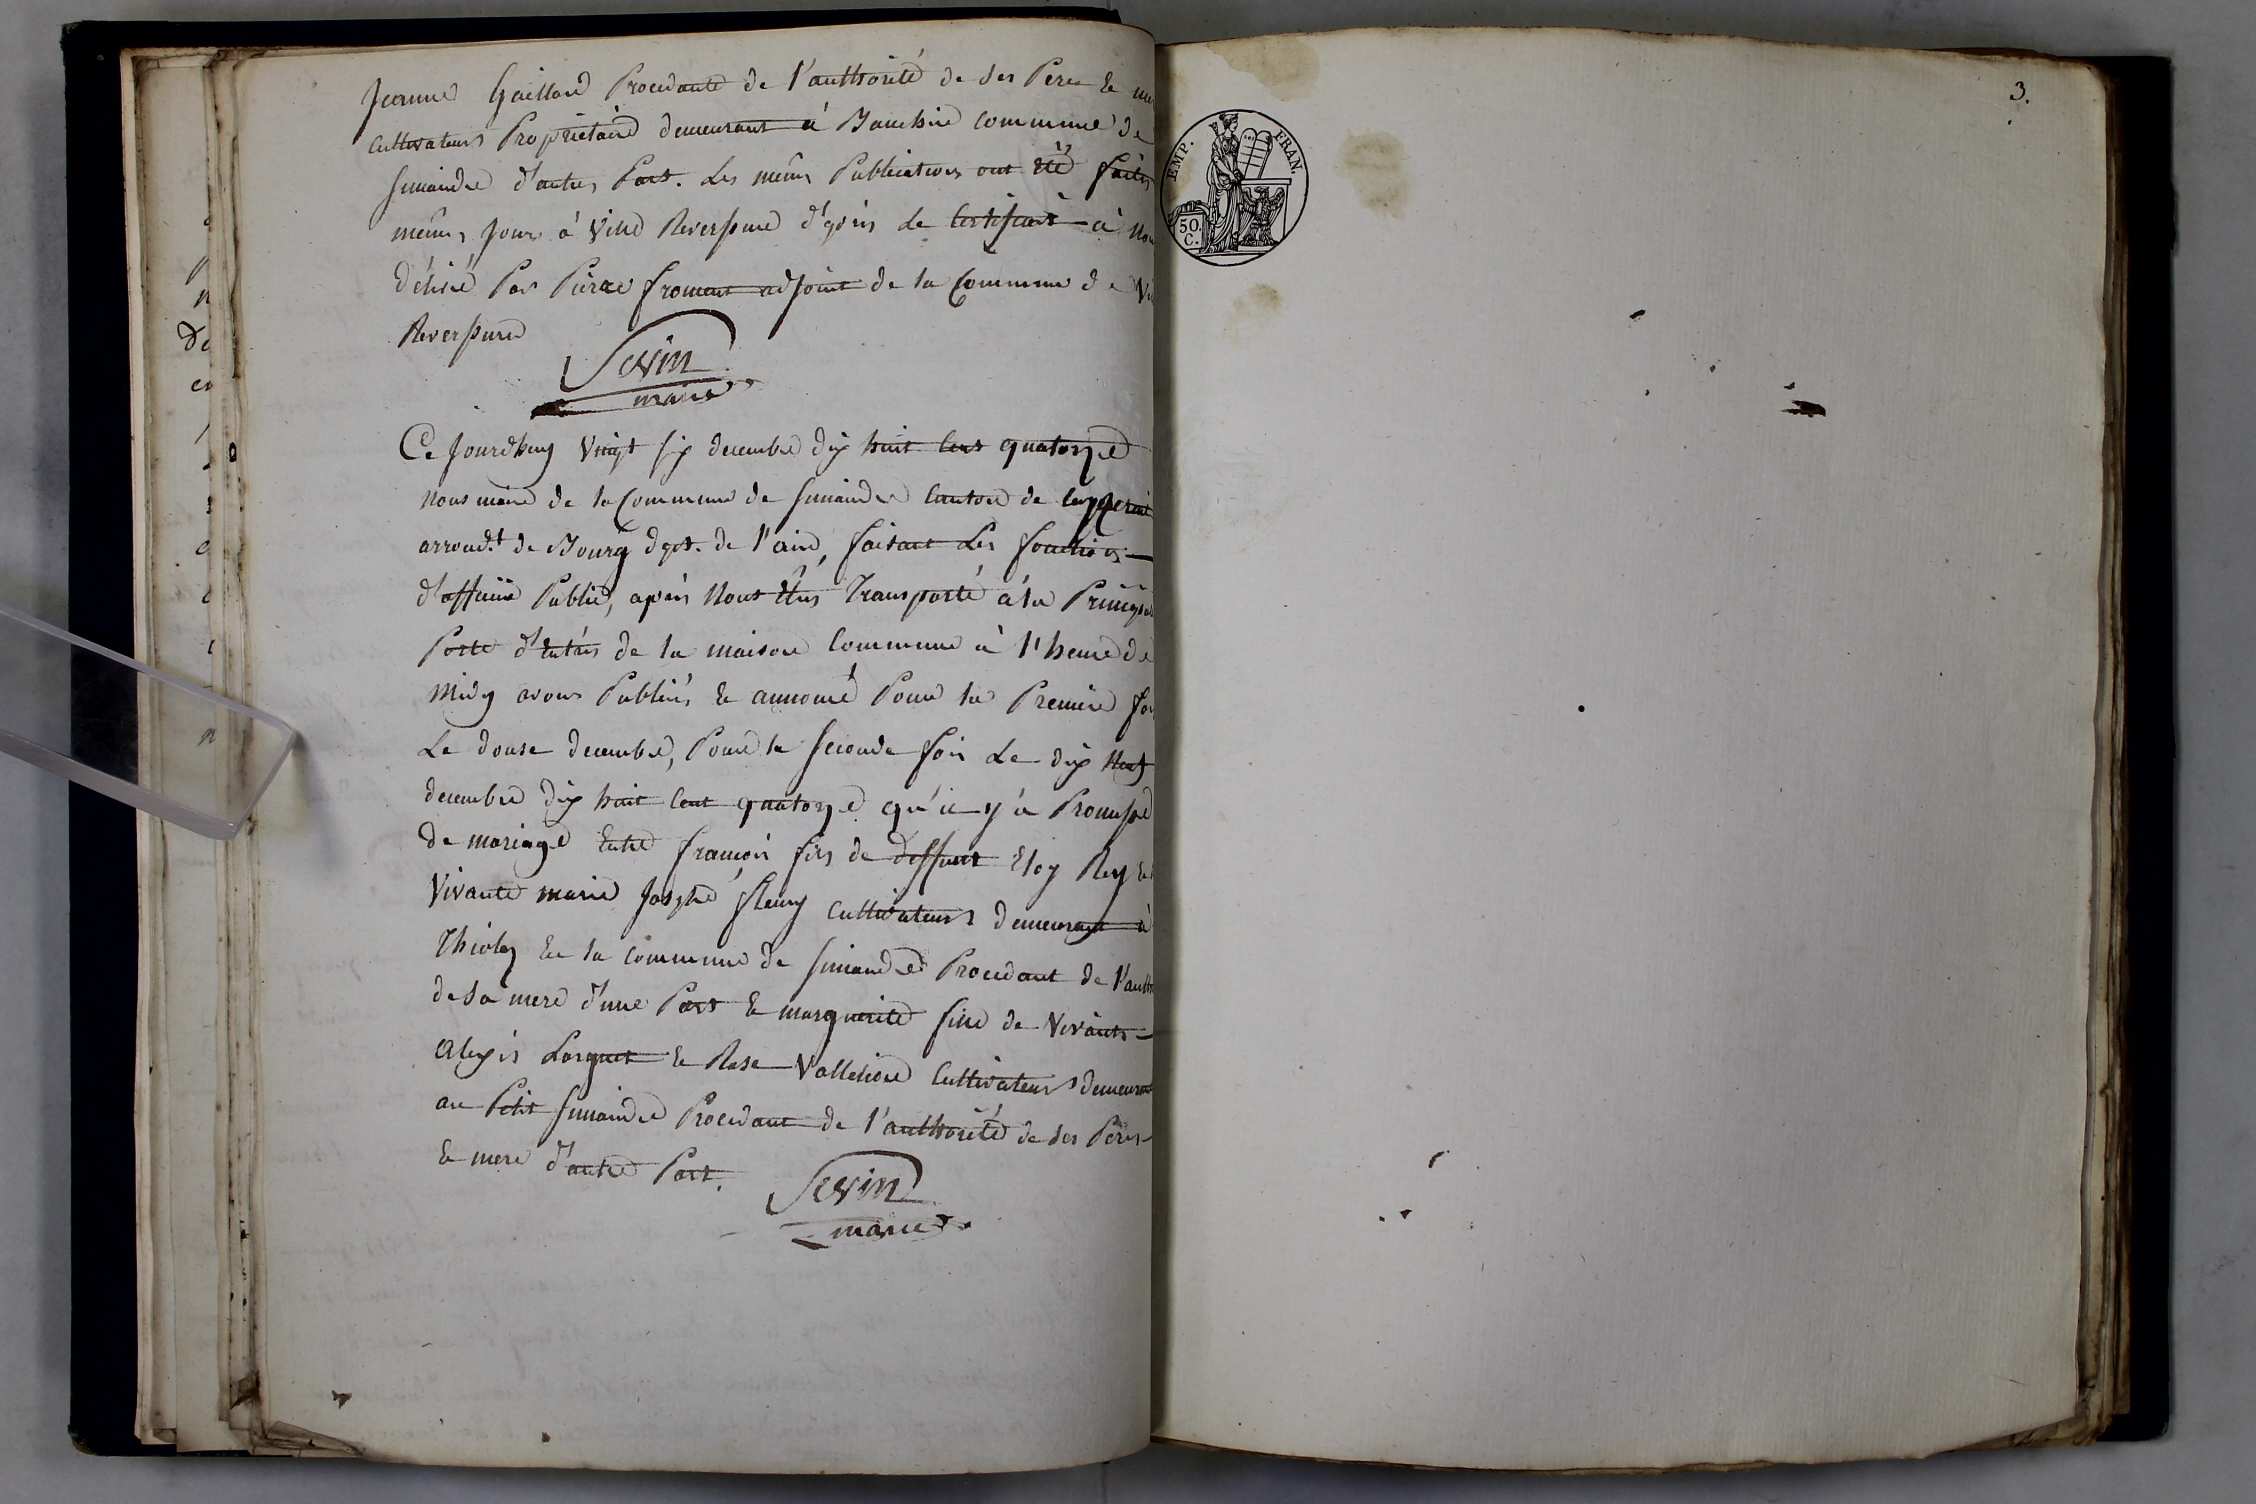 Jeanne Gaillard Procedante de l'authorité de ses Pere Et
Cultivateurs Propriétaire demeurant à commune de
Simandre d'autres Part. Les mêmes Publications ont Eté faites
mêmes Jours à Ville Reverssure d'après Le Certificat à
délivré Par Pierre froment adjoint de la Commune de
Reverssure
Sevin
maire
Ce Jourdhuy Vingt six decembre dix huit Cent quatorze
Nous maire de la Commune de Simandre Canton de
arrond.t de Bourg dept. de l'ain, faisant Les fonctions
d'officier Public, après Nous Etres Transporté à la
Porte d'Entrés de la maison Commune à l'heure de
Midy avons Publiés Et annoncé Pour la Premiere
Le douse decembre, Pour la seconde fois Le dix Neuf
decembre dix huit Cent quatorze qu'il y'a Promesse
de mariage Entre françois fils de deffunt Eloy Rey Et
Vivante marie Josephe fleury Cultivateurs demeurant à
Thioley En la Commune de Simandre Procedant de
de Sa mere d'une Part Et marguerite fille de Vivants
Alexis Lorguet Et Rose Valletion Cultivateurs demeurant
au Petit Simandre Procedant de l'authorité de Ses Pères
Et mere d'autre Part.
Sevin
maire
3.
EMP. FRAN.
50.
C.